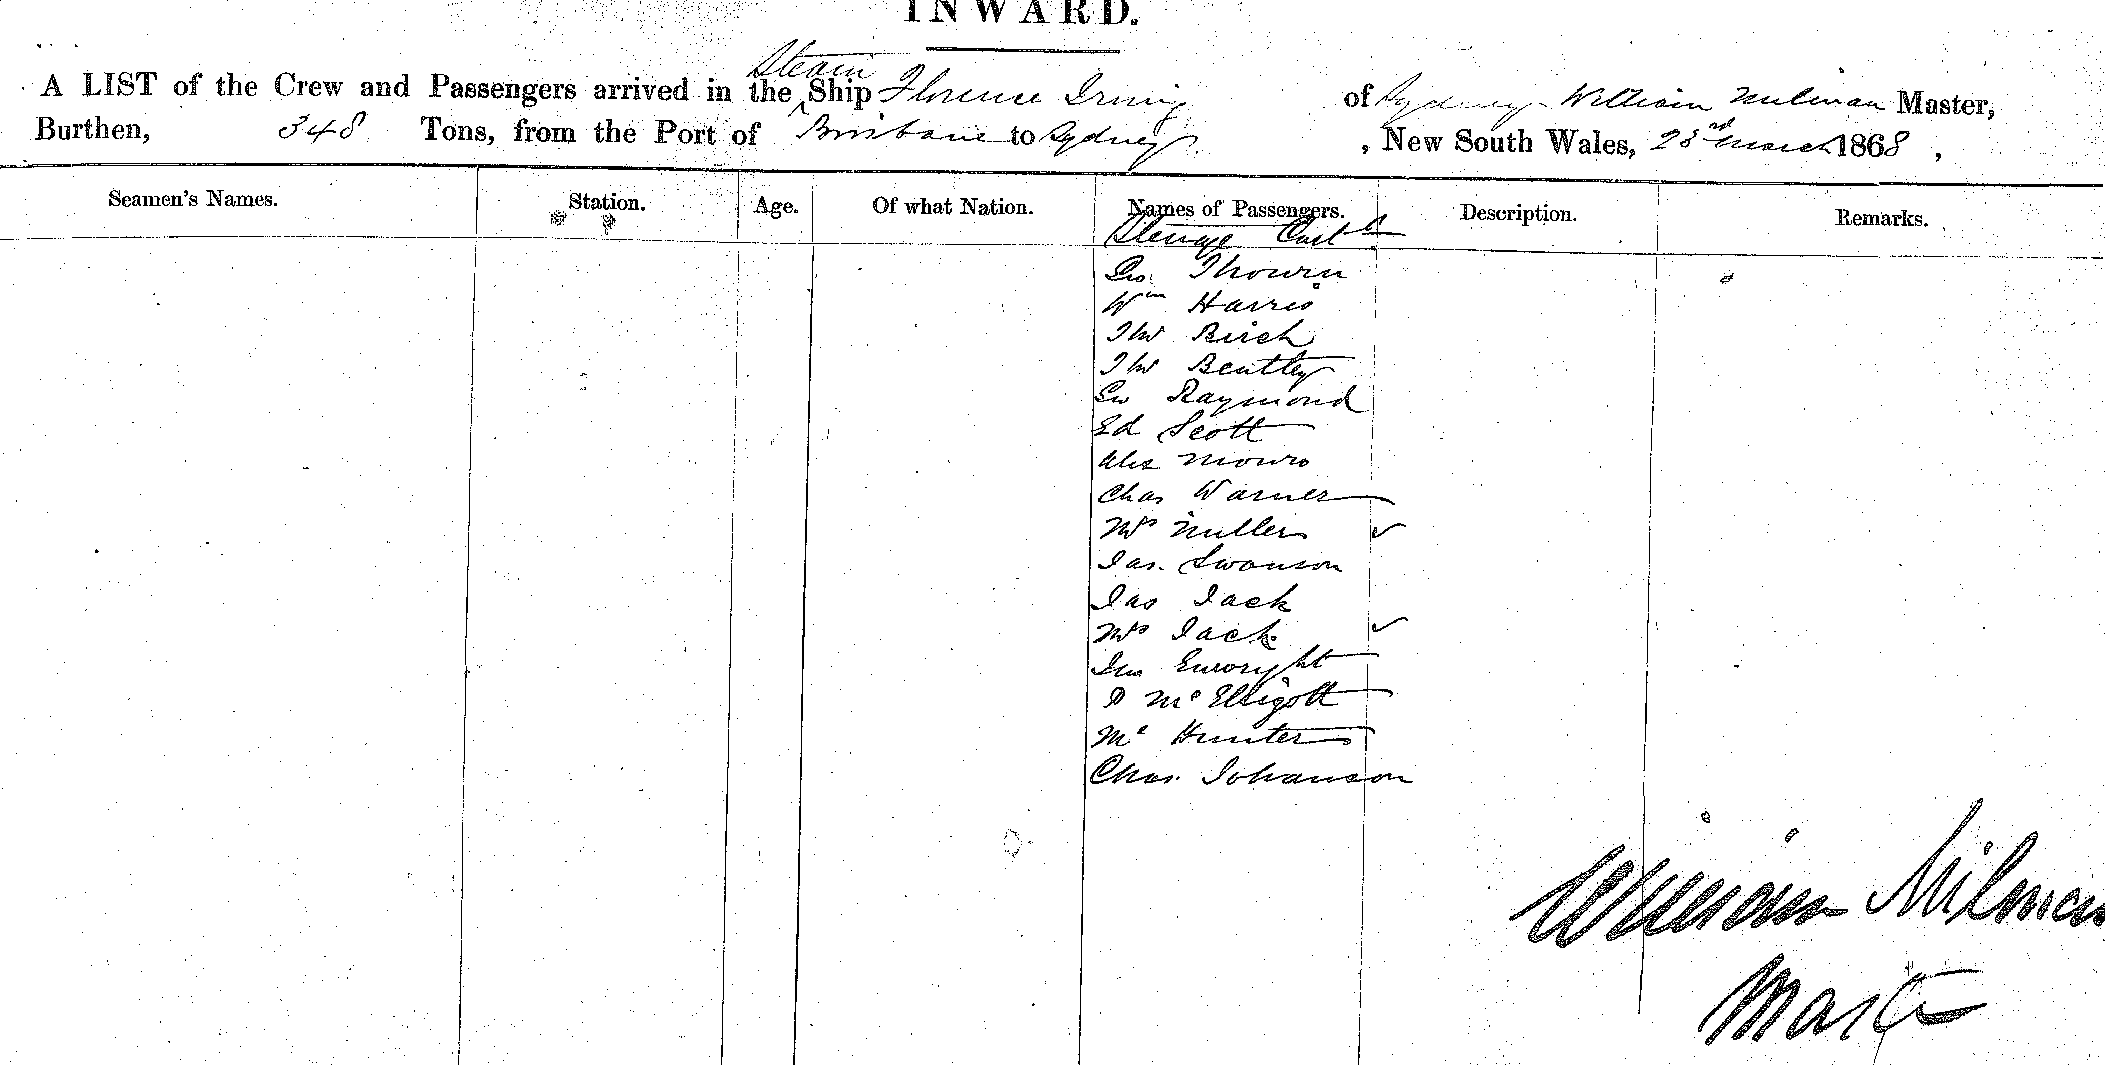 INWARD.
Steam
A LIST of the Crew and Passengers arrived in the Ship Florence Irving of Sydney William Milman Master,
Burthen, 348 Tons, from the Port of Brisbane to Sydney, New South Wales, 23rd March 1868,
Seamen's Names. Station. Age. Of what Nation. Names of Passengers. Description. Remarks.
Steerage Contd
Geo Thourn
Wm Harris
Thos Birch
Thos Bentley
Geo Raymond
Ed Scott
Alex Monro
Chas Warner
Mrs Miller
Jas. Swanson
Jas Jack
Mrs Jack
Jno Enwryht
D McElligott
Hunter
Chas. Johanson
William Milman
Master